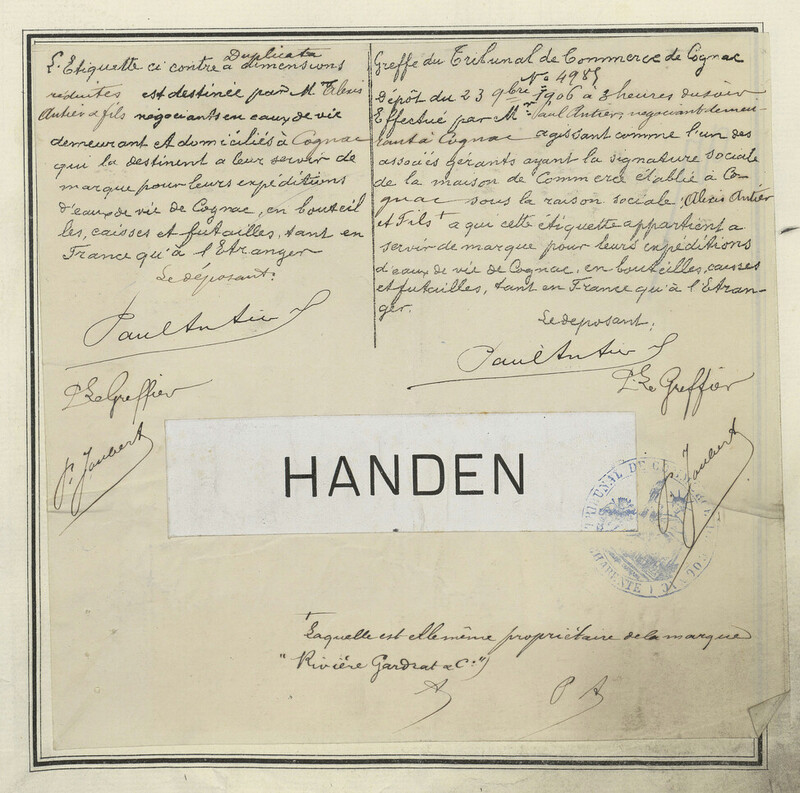 Duplicata
L'Etiquette ci contre a dimensions
réduites est destinée par M Alexis
Antier & fils négociants en eaux de vie
demeurant et domiciliés à Cognac
qui la destinent a leur servir de
marque pour leurs expéditions
d'eaux de vie de Cognac, en bouteil
les, caisses et futailles, tant en
France qu'à l'Etranger
Le déposant:
Paul Antier
P. Le Greffier
P. Joubert
Greffe du Tribunal de Commerce de Cognac
No 4985
Dépôt du 23 9bre 1906 à 3 heures du soir
Effectué par Mr Paul Antier, négociant demeu-
rant à Cognac agissant comme l'un des
associés gérants ayant la signature sociale
de la maison de Commerce établie à Co-
gnac sous la raison sociale: Alexis Antier
et Fils + a qui cette étiquette appartient a
servir de marque pour leurs expéditions
d'eaux de vie de Cognac, en bouteilles, caisses
et futailles, tant en France qu'à l'Etran-
ger.
Le déposant:
Paul Antier
P. Le Greffier
P. Joubert
HANDEN
TRIBUNAL DE COMMERCE
CHARENTE
+ Laquelle est elle même propriétaire de la marque
"Rivière Gardrat & Cie")
A
P A